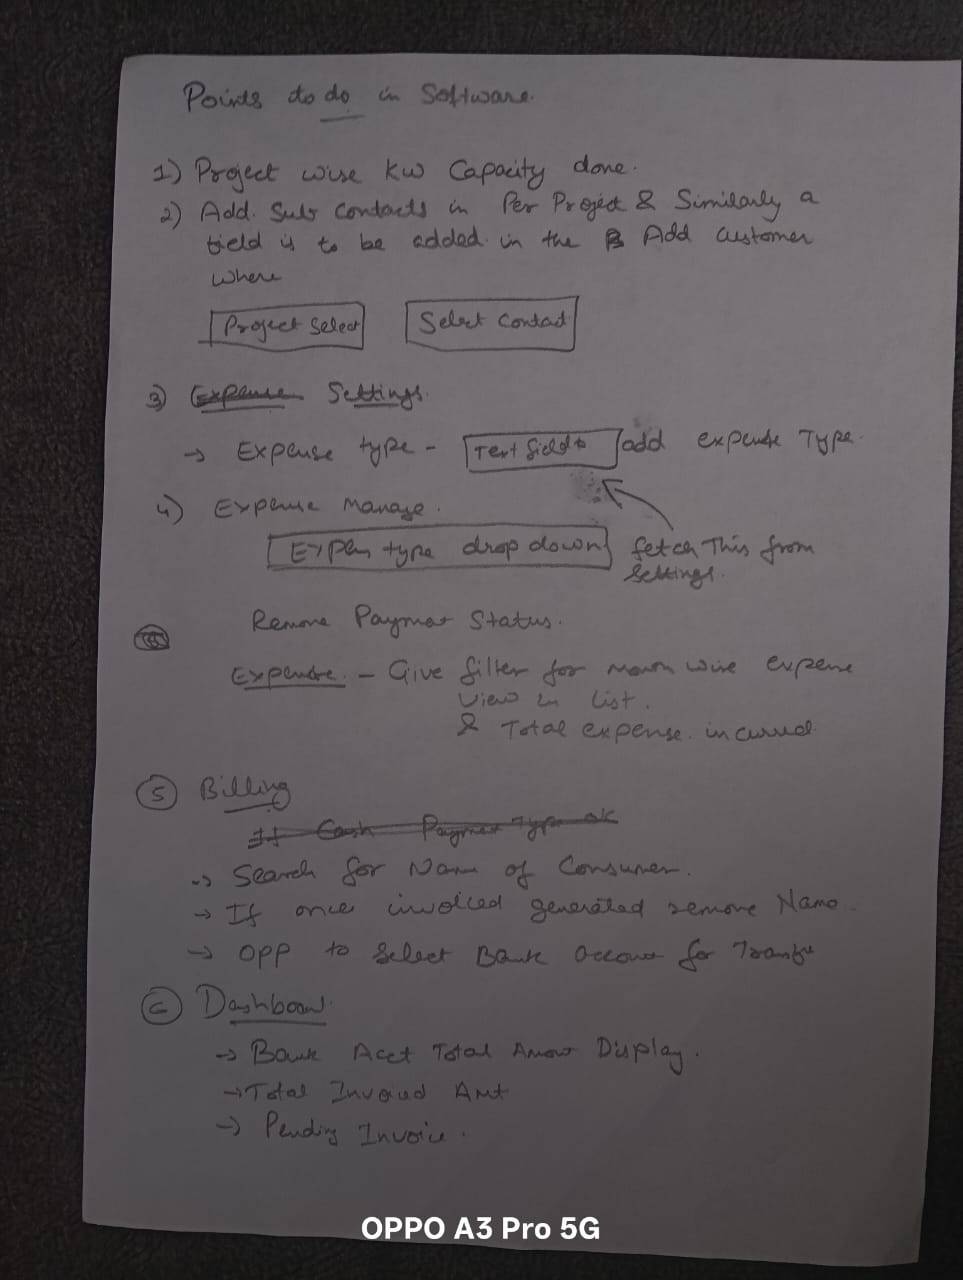 Points to do in Software.
1) Project wise KW Capacity done.
2) Add. Sub Contacts in Per Project & Similarly a
field is to be added. in the Add Customer
where
Project Select
Select Contact
3) Expense Settings.
→ Expense type - Text field add expense Type.
4) Expense Manage.
Expen type drop down
fetch This from
Settings.
Remove Payment Status.
Expense. - Give filter for month wise expense
view in list.
& Total expense. incurred
5 Billing
If Cash Payment Type
→ Search for Name of Consumer.
→ If once invoiced generated remove Name.
→ OPP to Select Bank Account for Transfer
6 Dashboard.
→ Bank Acct Total Amount Display.
→ Total Invoiced Amt
→ Pending Invoice.
OPPO A3 Pro 5G